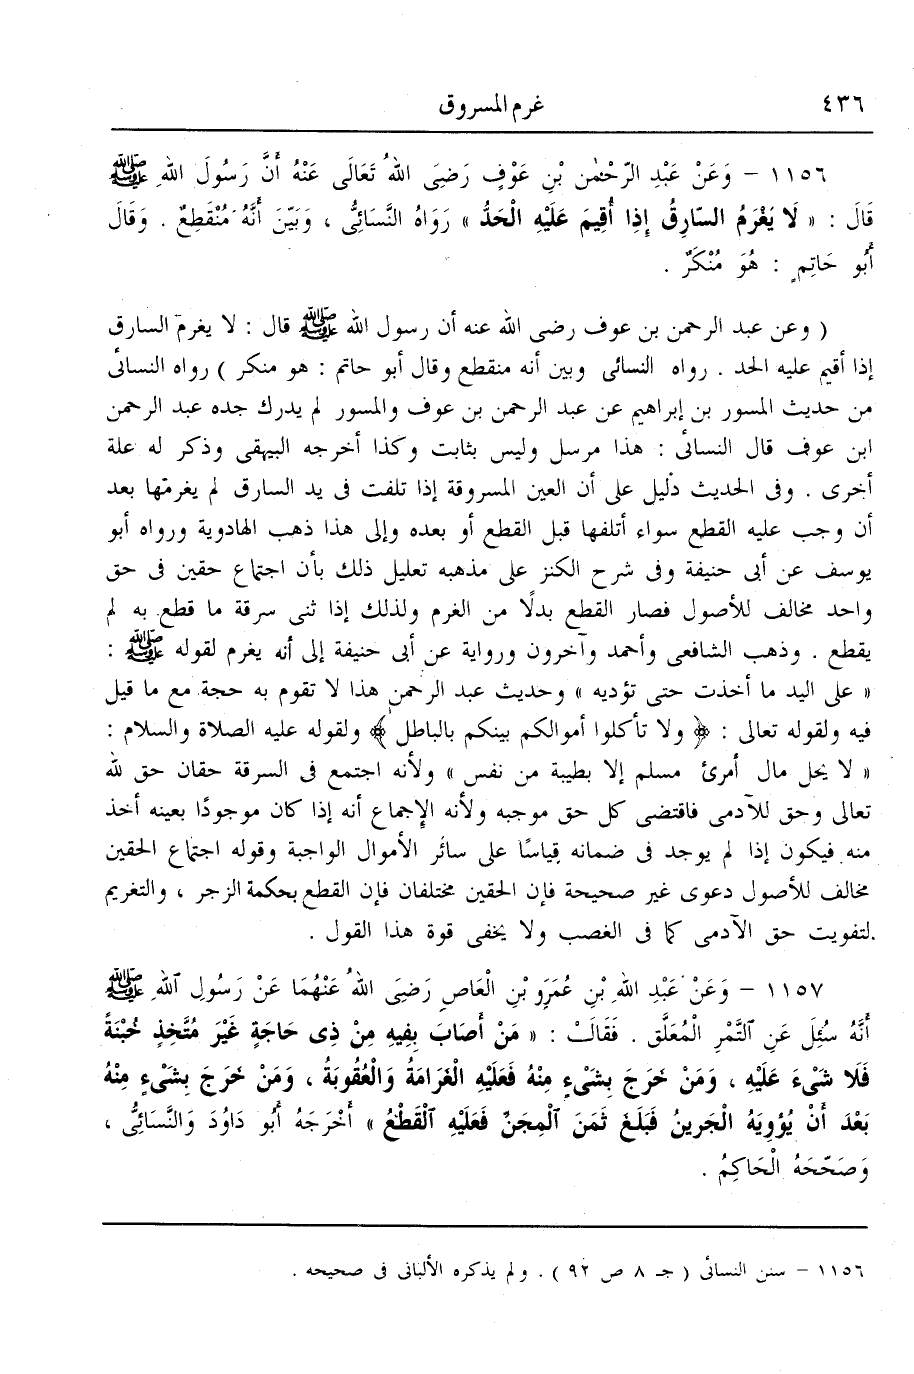 ٤٣٦ غرم المسروق
١١٥٦ – وَعَنْ عَبْدِ الرّحْمٰنِ بْنِ عَوْفٍ رَضِىَ اللهُ تَعَالَى عَنْهُ أَنَّ رَسُولَ اللهِ ﷺ
قَالَ : « لَا يَغْرَمُ السّارِقُ إِذَا أُقِيمَ عَلَيْهِ الْحَدُّ » رَوَاهُ النَّسَائِىُّ ، وَبَيّنَ أَنَّهُ مُنْقَطِعٌ . وَقَالَ
أَبُو حَاتِمٍ : هُوَ مُنْكَرٌ .
( وعن عبد الرحمن بن عوف رضى الله عنه أن رسول الله ﷺ قال : لا يغرم السارق
إذا أقيم عليه الحد . رواه النسائى وبين أنه منقطع وقال أبو حاتم : هو منكر ) رواه النسائى
من حديث المسور بن إبراهيم عن عبد الرحمن بن عوف والمسور لم يدرك جده عبد الرحمن
ابن عوف قال النسائى : هذا مرسل وليس بثابت وكذا أخرجه البيهقى وذكر له علة
أخرى . وفى الحديث دليل على أن العين المسروقة إذا تلفت فى يد السارق لم يغرمها بعد
أن وجب عليه القطع سواء أتلفها قبل القطع أو بعده وإلى هذا ذهب الهادوية ورواه أبو
يوسف عن أبى حنيفة وفى شرح الكنز على مذهبه تعليل ذلك بأن اجتماع حقين فى حق
واحد مخالف للأصول فصار القطع بدلًا من الغرم ولذلك إذا ثنى سرقة ما قطع به لم
يقطع . وذهب الشافعى وأحمد وآخرون ورواية عن أبى حنيفة إلى أنه يغرم لقوله ﷺ :
« على اليد ما أخذت حتى تؤديه » وحديث عبد الرحمن هذا لا تقوم به حجة مع ما قيل
فيه ولقوله تعالى : ﴿ ولا تأكلوا أموالكم بينكم بالباطل ﴾ ولقوله عليه الصلاة والسلام :
« لا يحل مال أمرئ مسلم إلا بطيبة من نفس » ولأنه اجتمع فى السرقة حقان حق لله
تعالى وحق للآدمى فاقتضى كل حق موجبه ولأنه الإجماع أنه إذا كان موجودًا بعينه أخذ
منه فيكون إذا لم يوجد فى ضمانه قياسًا على سائر الأموال الواجبة وقوله اجتماع الحقين
مخالف للأصول دعوى غير صحيحة فإن الحقين مختلفان فإن القطع بحكمة الزجر ، والتغريم
لتفويت حق الآدمى كما فى الغصب ولا يخفى قوة هذا القول .
١١٥٧ – وَعَنْ عَبْدِ اللهِ بْنِ عُمَرَو بْنِ الْعَاصِ رَضِىَ اللهُ عَنْهُمَا عَنْ رَسُولِ ٱللهِ ﷺ
أَنَّهُ سُئِلَ عَنِ التَّمْرِ الْمُعَلَّقِ . فَقَالَ : « مَنْ أَصَابَ بِفِيهِ مِنْ ذِى حَاجَةٍ غَيْرَ مُتَّخِذٍ خُبْنَةً
فَلَا شَىْءَ عَلَيْهِ ، وَمَنْ خَرَجَ بِشَىْءٍ مِنْهُ فَعَلَيْهِ الْغَرَامَةُ وَالْعُقُوبَةُ ، وَمَنْ خَرَجَ بِشَىْءٍ مِنْهُ
بَعْدَ أَنْ يُؤْوِيَهُ الْجَرينُ فَبَلَغَ ثَمَنَ ٱلْمِجَنّ فَعَلَيْهِ ٱلْقَطْعُ » أَخْرَجَهُ أَبُو دَاوُدَ وَالنَّسَائِىُّ ،
وَصَحّحَهُ الْحَاكِمُ .
١١٥٦ – سنن النسائى ( جـ ٨ ص ٩٢ ) . ولم يذكره الألبانى فى صحيحه .